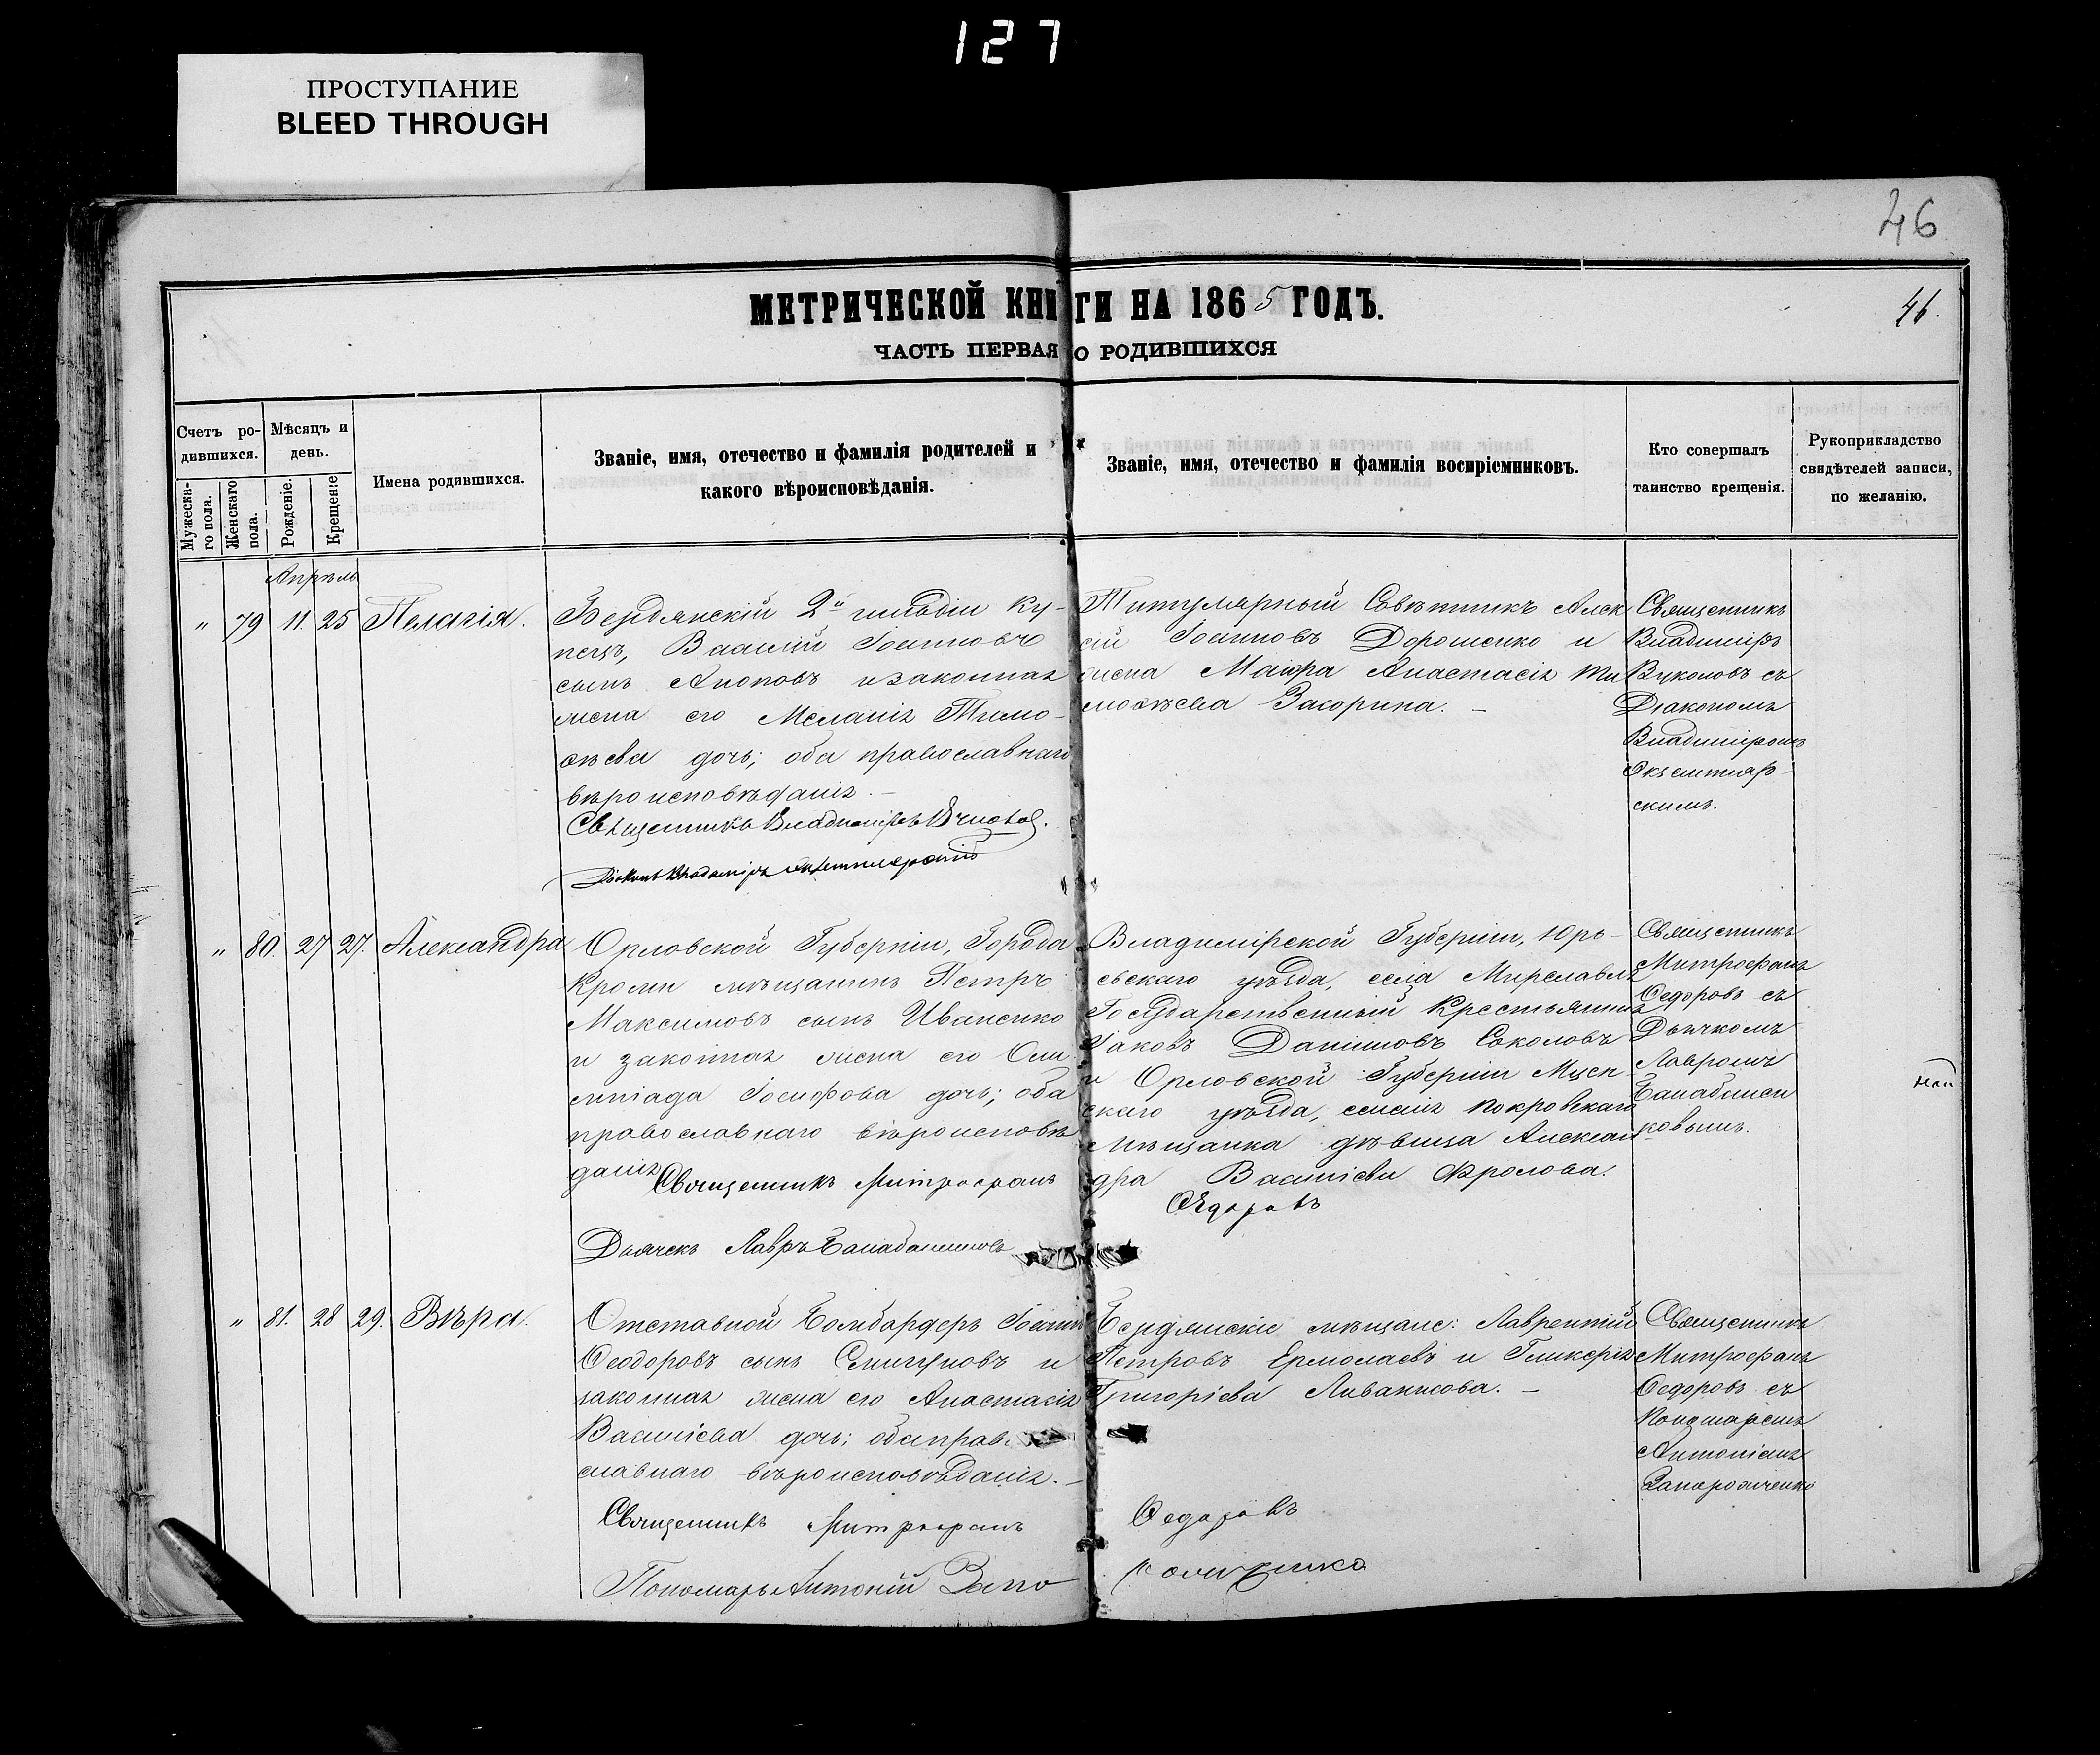 127
ПРОСТУПАНИЕ
BLEED THROUGH
46
МЕТРИЧЕСКОЙ КНИГИ НА 1865 ГОДЪ.
46.
ЧАСТЬ ПЕРВАЯ О РОДИВШИХСЯ
Счетъ ро-
дившихся.
Мужеска-
го пола.
Женскаго
пола.
Мѣсяцъ и
день.
Рожденіе.
Крещеніе
Имена родившихся.
Званіе, имя, отечество и фамилія родителей и
какого вѣроисповѣданія.
Званіе, имя, отечество и фамилія воспріемниковъ.
Кто совершалъ
таинство крещенія.
Рукоприкладство
свидѣтелей записи,
по желанію.
Апрѣль
" 79 11. 25 Пелагія.
Бердянскій 2й гильдіи Ку-
пецъ, Василій Іоанновъ
сынъ Аноповъ и законная
жена его Меланія Тимо-
ѳѣева дочь; оба православнаго
вѣроисповѣданія. –
Священникъ Владиміръ
Діаконъ Владиміръ
Титулярный Совѣтникъ Алек
сій Іоанновъ Дорошенко и
жена Маіора Анастасія Ти
моѳѣева Засорина. –
Священникъ
Владиміръ
Вуколовъ съ
Діакономъ
Владиміромъ
Экземпляр-
скимъ.
" 80. 27 27. Александра
Орловской Губерніи, Города
Кромы мѣщанинъ Петръ
Максимовъ сынъ Иваненко
и законная жена его Оли
мпіада Іосифова дочь; оба
православнаго вѣроисповѣ
данія
Священникъ Митрофанъ
Ѳедоровъ
Дьячекъ Лавръ
Владимірской Губерніи, Юрь-
евскаго уѣзда, села Мирславль
Государственный Крестьянинъ
Іаковъ Даниловъ Соколовъ
и Орловской Губерніи Мцен-
скаго уѣзда, селенія Покровскаго
Мѣщанка дѣвица Алексан
дра Васильева Фролова.
Священникъ
Митрофанъ
Ѳедоровъ съ
Дьячкомъ
Лавромъ
ковымъ.
" 81. 28 29. Вѣра.
Отставной Бомбардеръ
Ѳеодоровъ сынъ и
законная жена его Анастасія
Васильева дочь; оба право
славнаго вѣроисповѣданія. –
Священникъ Митрофанъ Ѳедоровъ
Пономарь Антоній Запо рожченко
Бердянскіе мѣщане: Лаврентій
Петровъ Ермолаевъ и Гликерія
Григоріева Ливанисова. –
Священникъ
Митрофанъ
Ѳедоровъ съ
Пономаремъ
Антоніемъ
Запорожченко